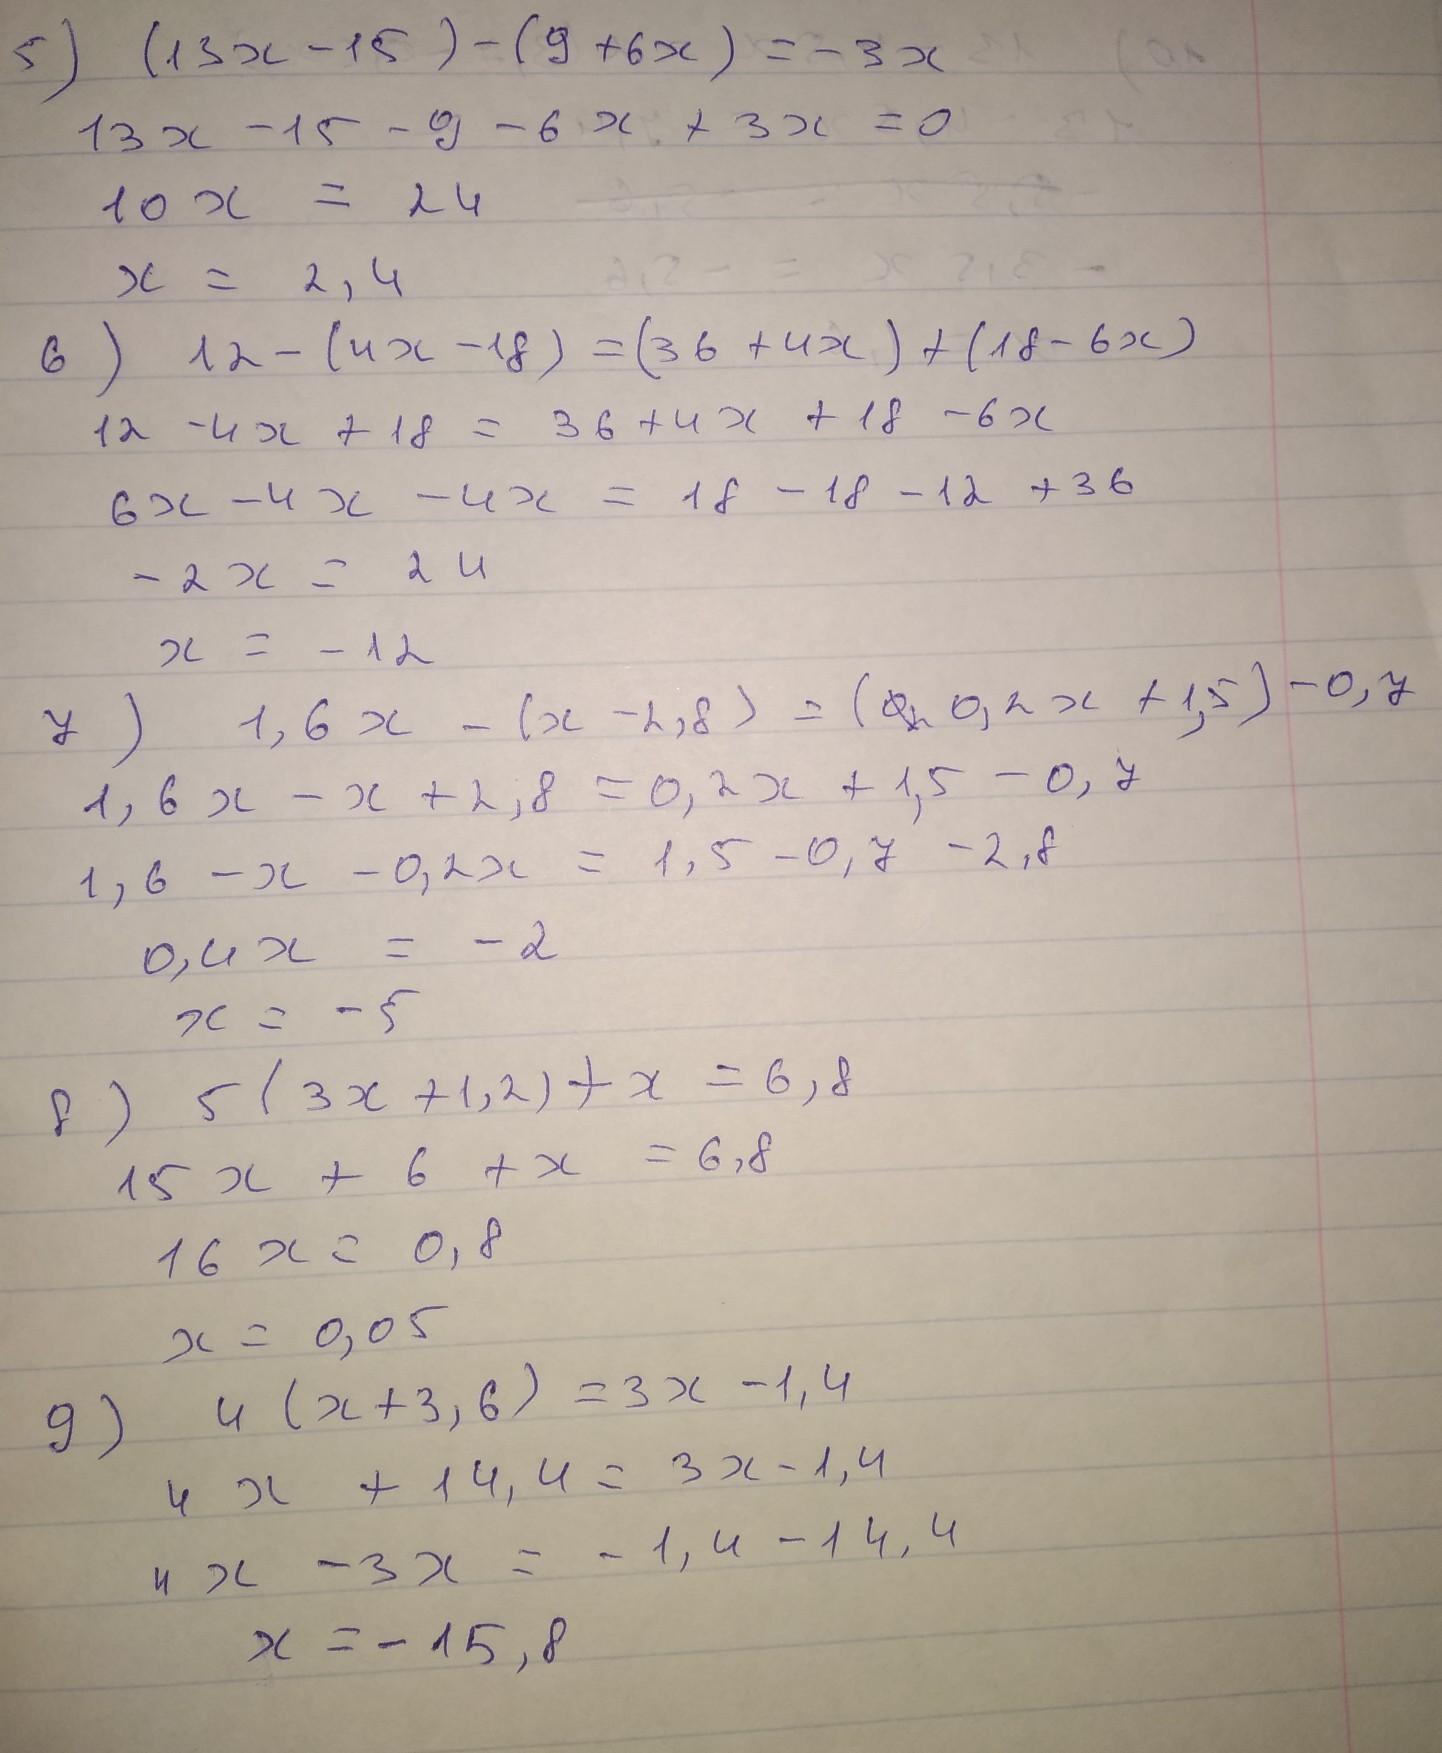 5) (13x-15)-(9+6x)=-3x
13x-15-9-6x+3x=0
10x=24
x=2,4
6) 12-(4x-18)=(36+4x)+(18-6x)
12-4x+18=36+4x+18-6x
6x-4x-4x=18-18-12+36
-2x=24
x=-12
7) 1,6x-(x-2,8)=(0,2x+1,5)-0,7
1,6x-x+2,8=0,2x+1,5-0,7
1,6-x-0,2x=1,5-0,7-2,8
0,4x=-2
x=-5
8) 5(3x+1,2)+x=6,8
15x+6+x=6,8
16x=0,8
x=0,05
9) 4(x+3,6)=3x-1,4
4x+14,4=3x-1,4
4x-3x=-1,4-14,4
x=-15,8